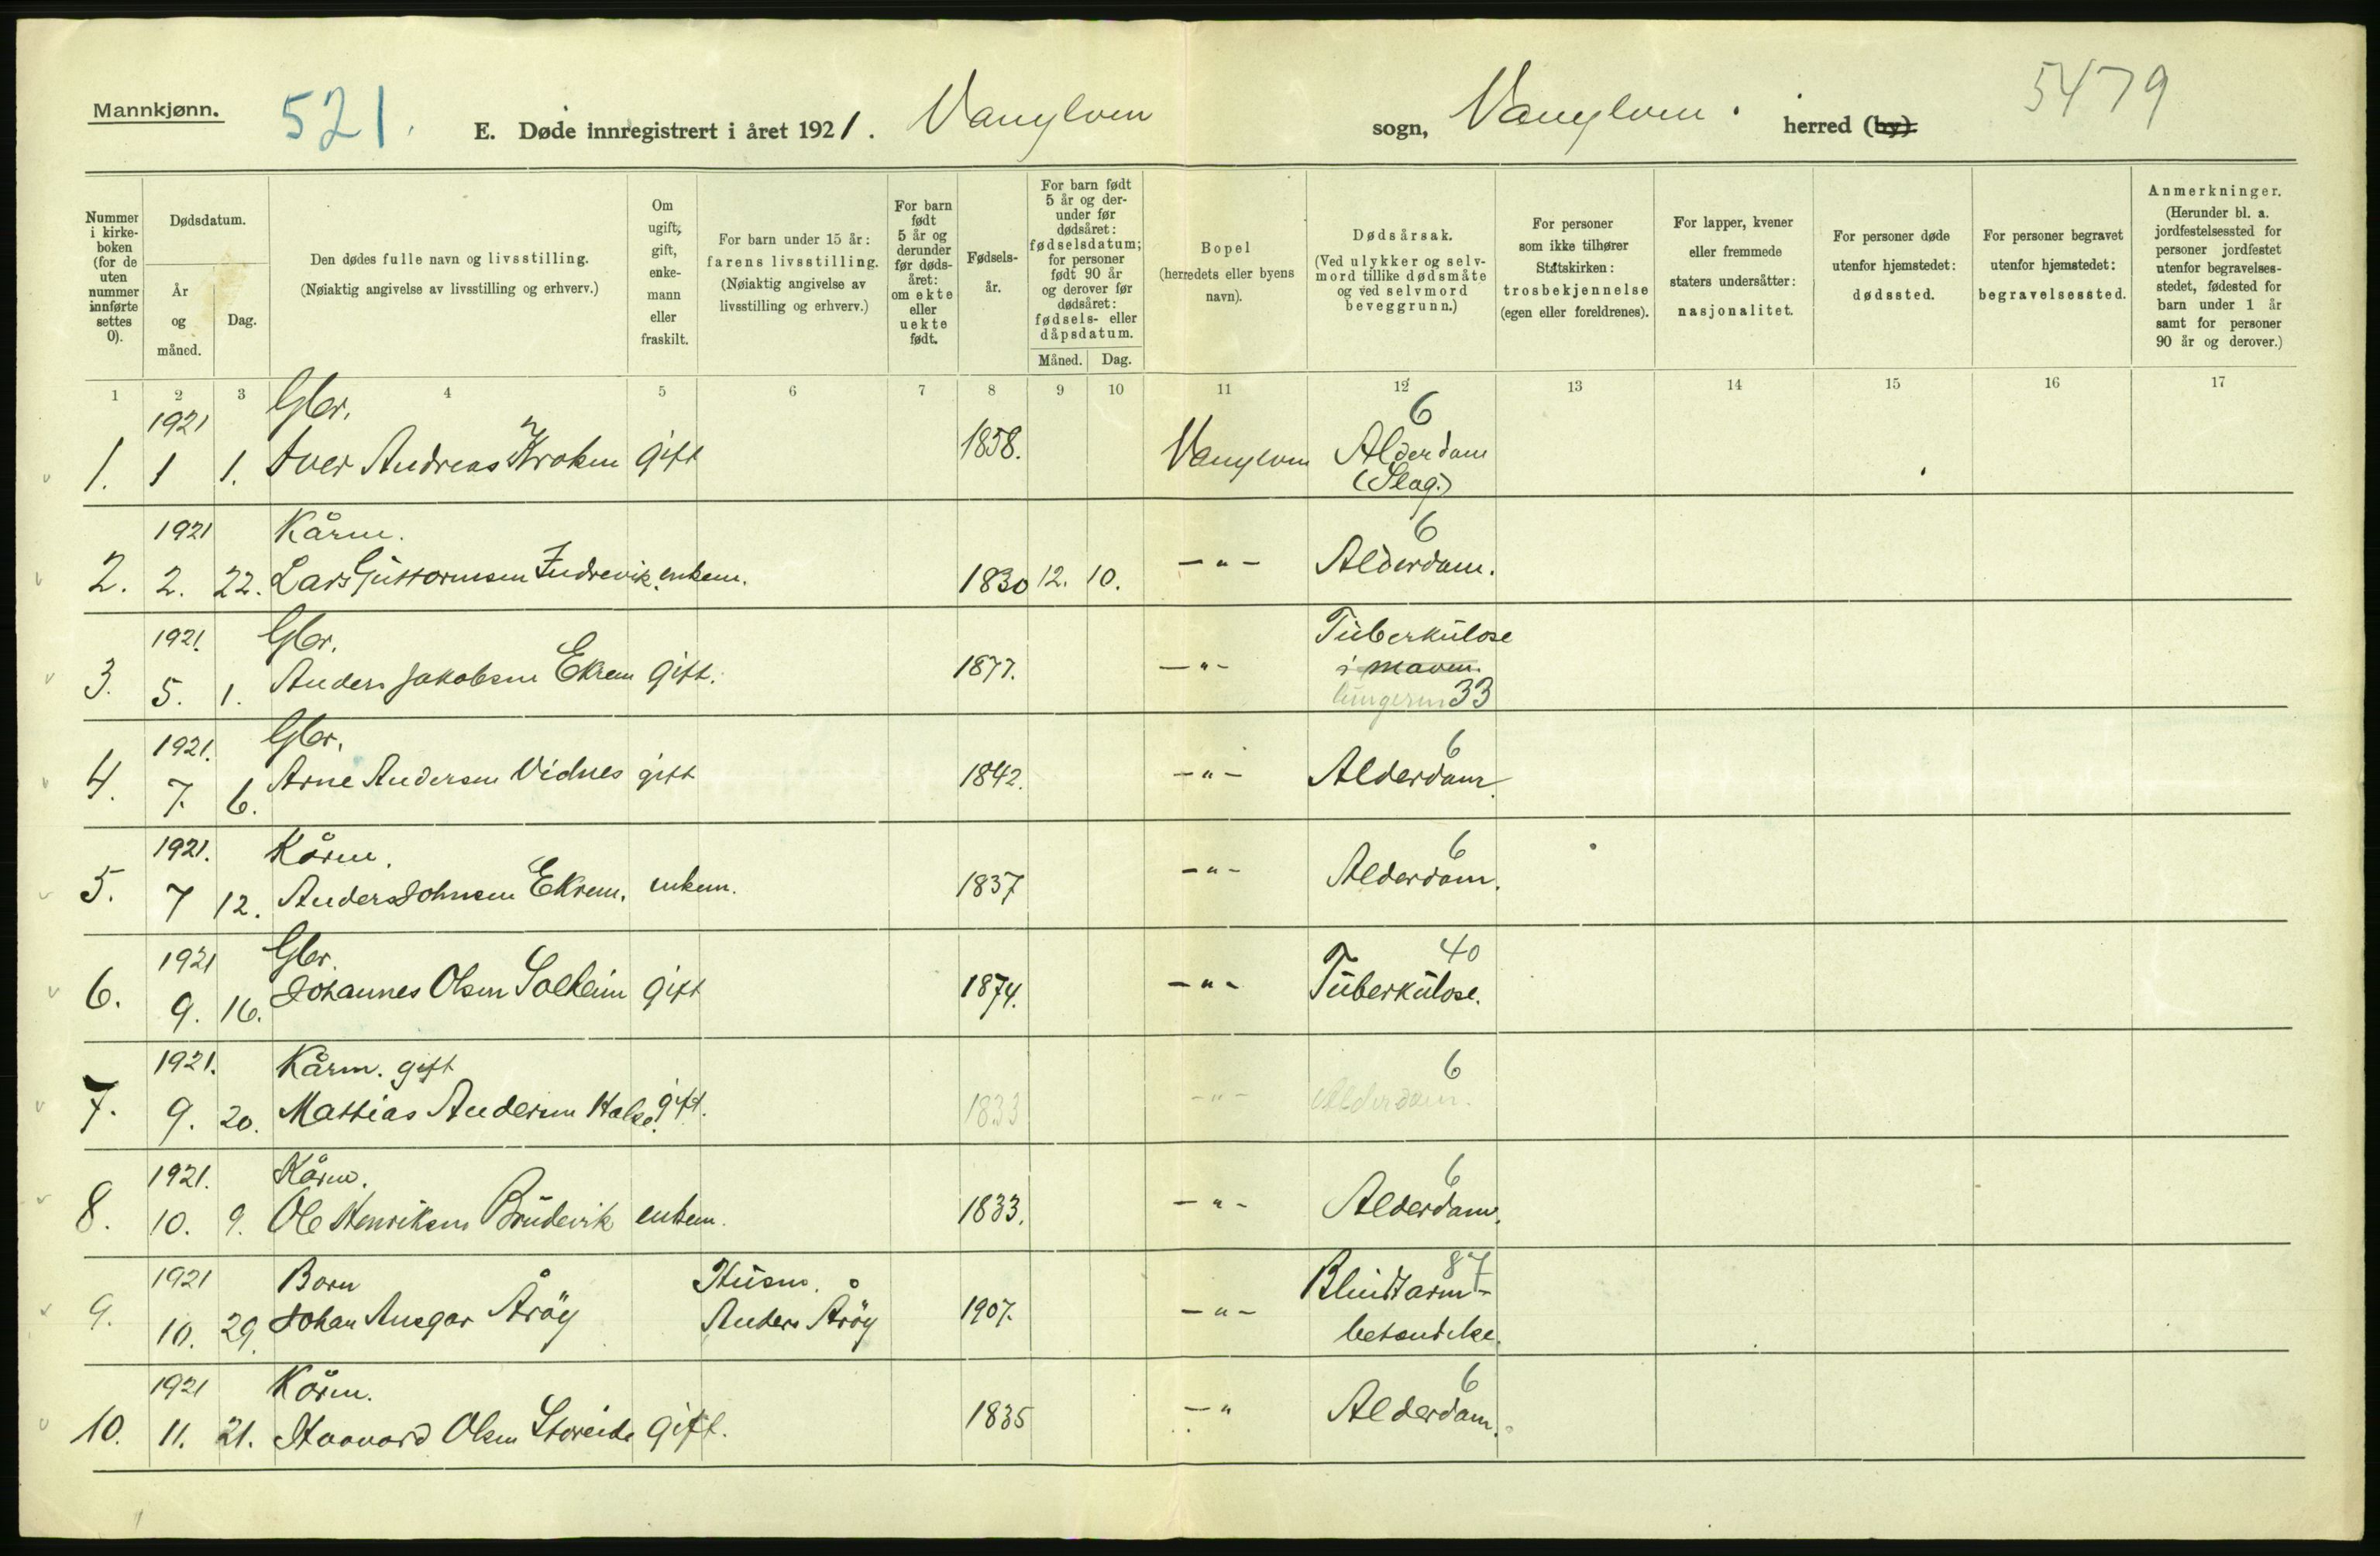 Mannkjønn.
521.
E. Døde innregistrert i året 1921. Vanylven sogn, Vanylven herred (by).
5479
Nummer i kirkeboken (for de uten nummer innførte settes 0).
Dødsdatum.
År og måned.
Dag.
Den dødes fulle navn og livsstilling.
(Nøiaktig angivelse av livsstilling og erhverv.)
Om ugift, gift, enkemann eller fraskilt.
For barn under 15 år: farens livsstilling.
(Nøiaktig angivelse av livsstilling og erhverv.)
For barn født 5 år og derunder før dødsåret: om ekte eller uekte født.
Fødselsår.
For barn født 5 år og derunder før dødsåret: fødselsdatum; for personer født 90 år og derover før dødsåret: fødsels- eller dåpsdatum.
Måned. Dag.
Bopel (herredets eller byens navn).
Dødsårsak.
(Ved ulykker og selvmord tillike dødsmåte og ved selvmord beveggrunn.)
For personer som ikke tilhører Statskirken: trosbekjennelse (egen eller foreldrenes).
For lapper, kvener eller fremmede staters undersåtter: nasjonalitet.
For personer døde utenfor hjemstedet: dødssted.
For personer begravet utenfor hjemstedet: begravelsessted.
Anmerkninger.
(Herunder bl. a. jordfestelsessted for personer jordfestet utenfor begravelsesstedet, fødested for barn under 1 år samt for personer 90 år og derover.)
1 2 3 4 5 6 7 8 9 10 11 12 13 14 15 16 17
1921 Gbr. 6
1. 1 1. Iver Andreas Kroken gift 1858. Vanylven Alderdom
(Slag.)
1921 Kårm. 6
2. 2. 22. Lars Guttormsen Indrevik enkem. 1830 12. 10. — " — Alderdom.
1921. Gbr. Tuberkulose
3. 5. 1. Anders Jakobsen Ekrem gift. 1877. — " — i maven.
lungerne 33
1921. Gbr. 6
4. 7. 6. Arne Andersen Vidnes gift 1842. — " — Alderdom.
1921. Kårm. 6
5. 7 12. Anders Johnsen Ekrem. enkem. 1837 — " — Alderdom.
1921 Gbr. 40
6. 9. 16. Johannes Olsen Solheim gift 1874. — " — Tuberkulose.
1921. Kårm. gift 6
7. 9. 20. Mattias Andersen Halse. gift. 1833 — " — Alderdom.
1921. Kårm. 6
8. 10. 9. Ole Henriksen Brudevik enkem. 1833. — " — Alderdom.
1921 Barn Husm. 87
9. 10. 29. Johan Ansgar Årøy Anders Årøy 1907. — " — Blindtarm-
betændelse.
1921 Kårm. 6
10. 11. 21. Haavard Olsen Storeide gift. 1835 — " Alderdom.